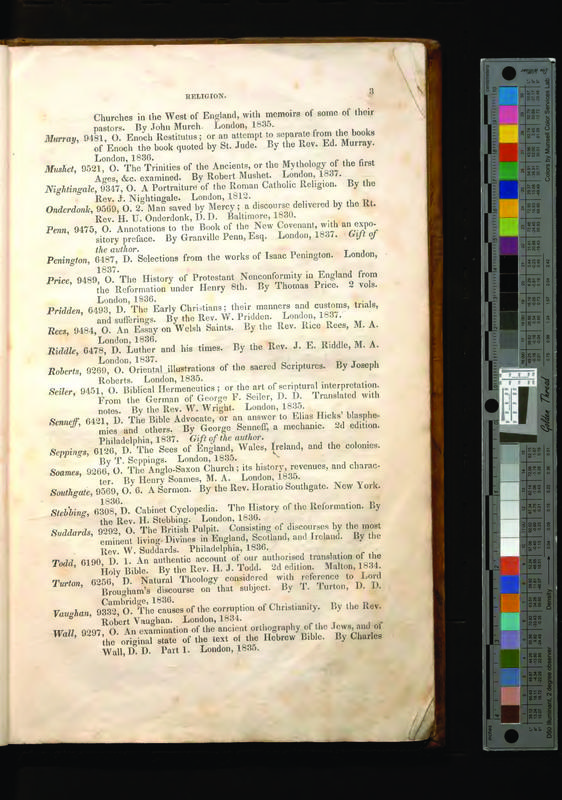 RELIGION. 3
Churches in the West of England, with memoirs of some of their
pastors. By John Murch. London, 1835.
Murray, 9481, O. Enoch Restitutus; or an attempt to separate from the books
of Enoch the book quoted by St. Jude. By the Rev. Ed. Murray.
London, 1836.
Mushet, 9521, O. The Trinities of the Ancients, or the Mythology of the first
Ages, &c. examined. By Robert Mushet. London, 1837.
Nightingale, 9347, O. A Portraiture of the Roman Catholic Religion. By the
Rev. J. Nightingale. London, 1812.
Onderdonk, 9569, O. 2. Man saved by Mercy; a discourse delivered by the Rt.
Rev. H. U. Onderdonk, D. D. Baltimore, 1830.
Penn, 9475, O. Annotations to the Book of the New Covenant, with an expo-
sitory preface. By Granville Penn, Esq. London, 1837. Gift of
the author.
Penington, 6487, D. Selections from the works of Isaac Penington. London,
1837.
Price, 9489, O. The History of Protestant Nonconformity in England from
the Reformation under Henry 8th. By Thomas Price. 2 vols.
London, 1836.
Pridden, 6493, D. The Early Christians; their manners and customs, trials,
and sufferings. By the Rev. W. Pridden. London, 1837.
Rees, 9484, O. An Essay on Welsh Saints. By the Rev. Rice Rees, M. A.
London, 1836.
Riddle, 6478, D. Luther and his times. By the Rev. J. E. Riddle, M. A.
London, 1837.
Roberts, 9269, O. Oriental illustrations of the sacred Scriptures. By Joseph
Roberts. London, 1835.
Seiler, 9451, O. Biblical Hermeneutics; or the art of scriptural interpretation.
From the German of George F. Seiler, D. D. Translated with
notes. By the Rev. W. Wright. London, 1835.
Senneff, 6421, D. The Bible Advocate, or an answer to Elias Hicks' blasphe-
mies and others. By George Senneff, a mechanic. 2d edition.
Philadelphia, 1837. Gift of the author.
Seppings, 6126, D. The Sees of England, Wales, Ireland, and the colonies.
By T. Seppings. London, 1835.
Soames, 9266, O. The Anglo-Saxon Church; its history, revenues, and charac-
ter. By Henry Soames, M. A. London, 1835.
Southgate, 9569, O. 6. A Sermon. By the Rev. Horatio Southgate. New York.
1836.
Stebbing, 6308, D. Cabinet Cyclopedia. The History of the Reformation. By
the Rev. H. Stebbing. London, 1836.
Suddards, 9292, O. The British Pulpit. Consisting of discourses by the most
eminent living Divines in England, Scotland, and Ireland. By the
Rev. W. Suddards. Philadelphia, 1836.
Todd, 6190, D. 1. An authentic account of our authorised translation of the
Holy Bible. By the Rev. H. J. Todd. 2d edition. Malton, 1834.
Turton, 6256, D. Natural Theology considered with reference to Lord
Brougham's discourse on that subject. By T. Turton, D. D.
Cambridge, 1836.
Vaughan, 9332, O. The causes of the corruption of Christianity. By the Rev.
Robert Vaughan. London, 1834.
Wall, 9297, O. An examination of the ancient orthography of the Jews, and of
the original state of the text of the Hebrew Bible. By Charles
Wall, D. D. Part 1. London, 1835.
Colors by Munsell Color Services Lab
Golden Thread
Density
D50 Illuminant, 2 degree observer